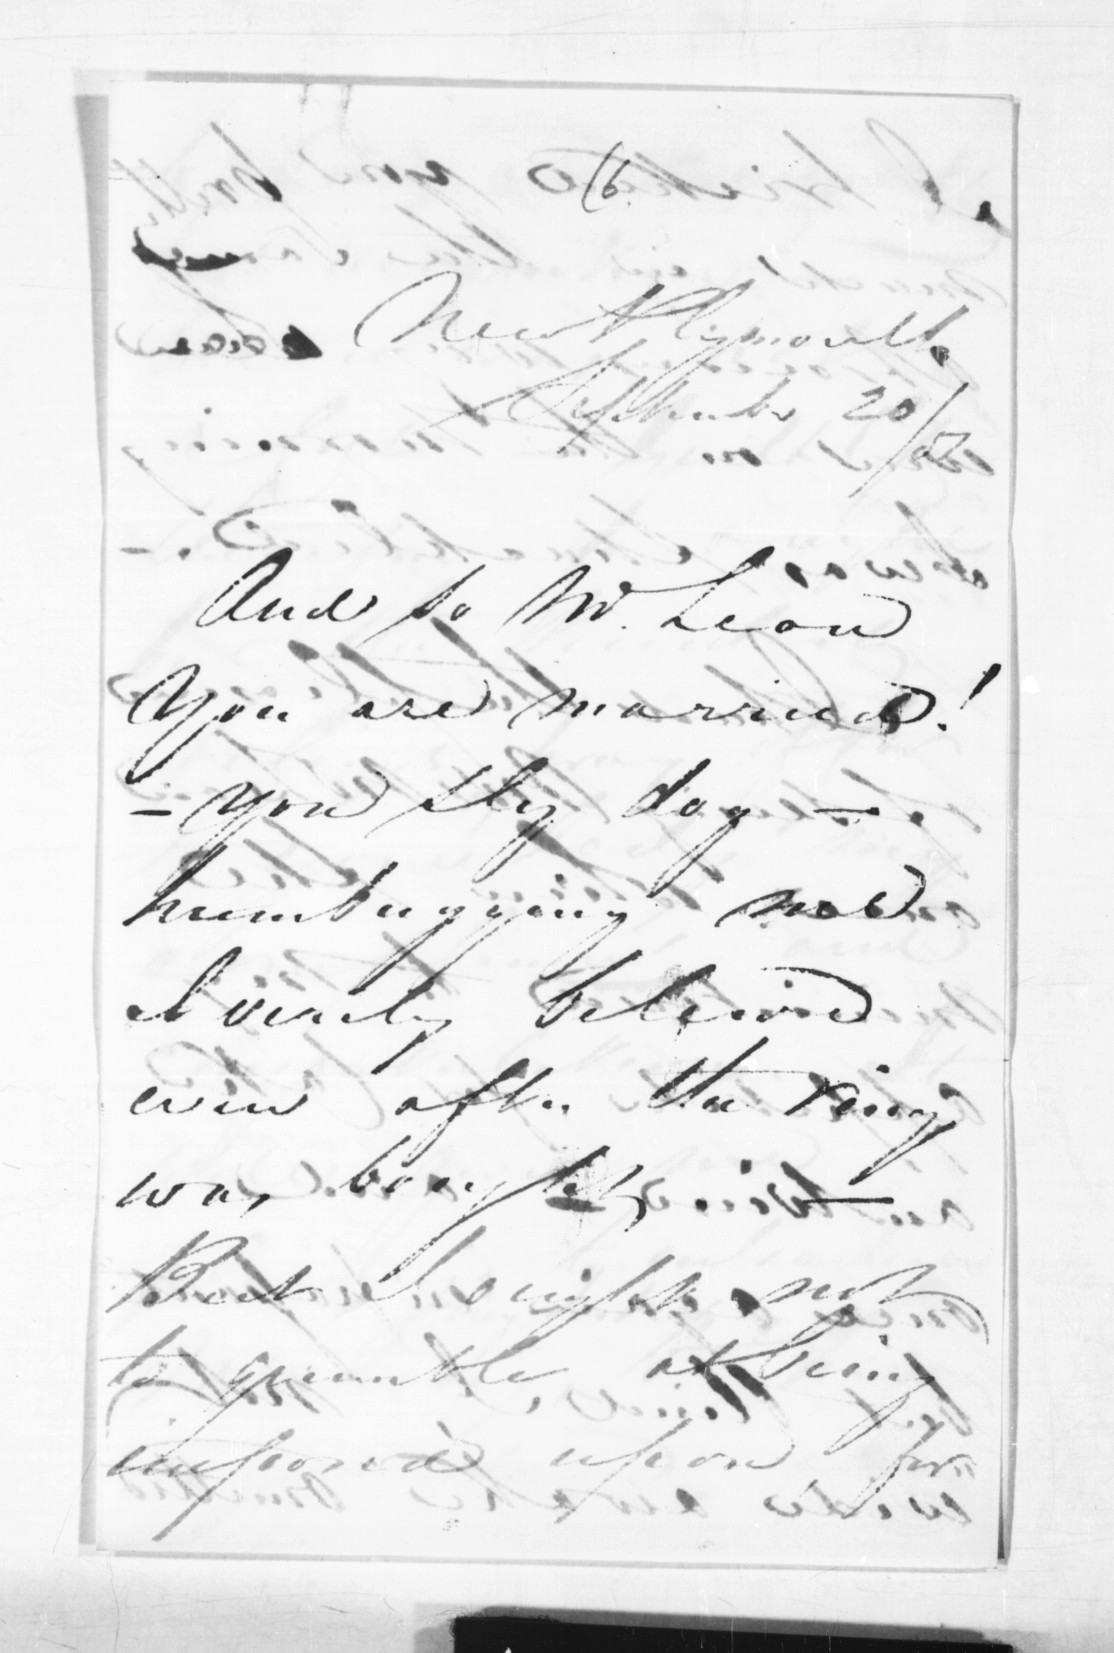 (6.
New Plymouth
September 20/52
And so Mr. Lean
You are married!
- you sly dog -
humbugging me
I verily believe
even after the ring
was bought, -
But I ought not
to grumble at being
imposed upon for